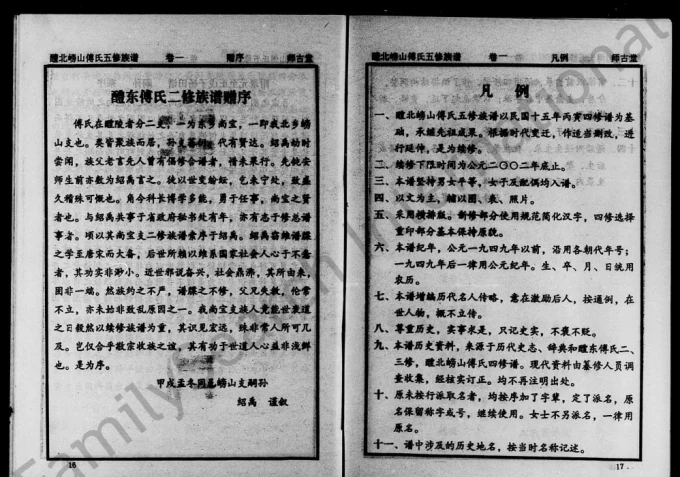 醴北崂山傅氏五修族谱 卷一 赠序 师古堂
醴东傅氏二修族谱赠序
傅氏在醴陵者分二支，一为东乡尚宝，一即我北乡崂
山支也。莫皆聚族而居，孙支蕃衍，代有贤达。绍禹幼时
尝闻，族父老言先人曾有倡修合谱者，惜未果行。先钝安
师生前亦数为绍禹言之。徒以世变
久稽殊可慨也。角今科长博学多能，勇于任事，尚宝之贤
者也。与绍禹共事于省政府秘书处有年，亦有志于修总谱
事者。顷以其尚宝支二修族谱索序于绍禹。绍禹窃维谱牒
之学至唐宋而大备，后世所赖以维系国家社会人心于不紊
者，其功实非渺小。近世邪说奋兴，社会鼎沸，其所由来，
固非一端。然族约之不严，谱牒之不修，父兄失教，伦常
不立，亦未始非致乱原因之一。我尚宝支族人竟能世衰道
之日毅然以续修族谱为重，其识见宏远，殊非常人所可几
及。岂仅合乎敬宗收族之谊，其有功于世道人心益非浅鲜
也。是为序。
甲戌孟冬同邑崂山支嗣孙
绍禹 谨叙
16
醴北崂山傅氏五修族谱 卷一 凡例 师古堂
凡例
一、醴北崂山傅氏五修族谱以民国十五年丙寅四修谱为基
础，承继先祖成果。根据时代变迁，作适当删改，进
行延伸，是为续修。
二、续修下限时间为公元二〇〇二年底止。
三、本谱坚持男女平等，女子及配偶均入谱。
四、以文为主，辅以图、表、照片。
五、采用横排版。新修部分使用规范简化汉字，四修选择
重印部分基本保持原貌。
六、本谱纪年，公元一九四九年以前，沿用各朝代年号；
一九四九年后一律用公元纪年。生、卒、月、日统用
农历。
七、本谱增编历代名人传略，意在激励后人，按通例，在
世人物，概不立传。
八、尊重历史，实事求是，只记史实，不褒不贬。
九、本谱历史资料，来源于历代史志、辞典和醴东傅氏二、
三修，醴北崂山傅氏四修谱。现代资料由纂修人员调
查收集，经核实订正。均不再注明出处。
十、原未按行派取名者，均按序加了字辈，定了派名，原
名保留称字或号，继续使用。女士不另派名，一律用
原名。
十一、谱中涉及的历史地名，按当时名称记述。
17